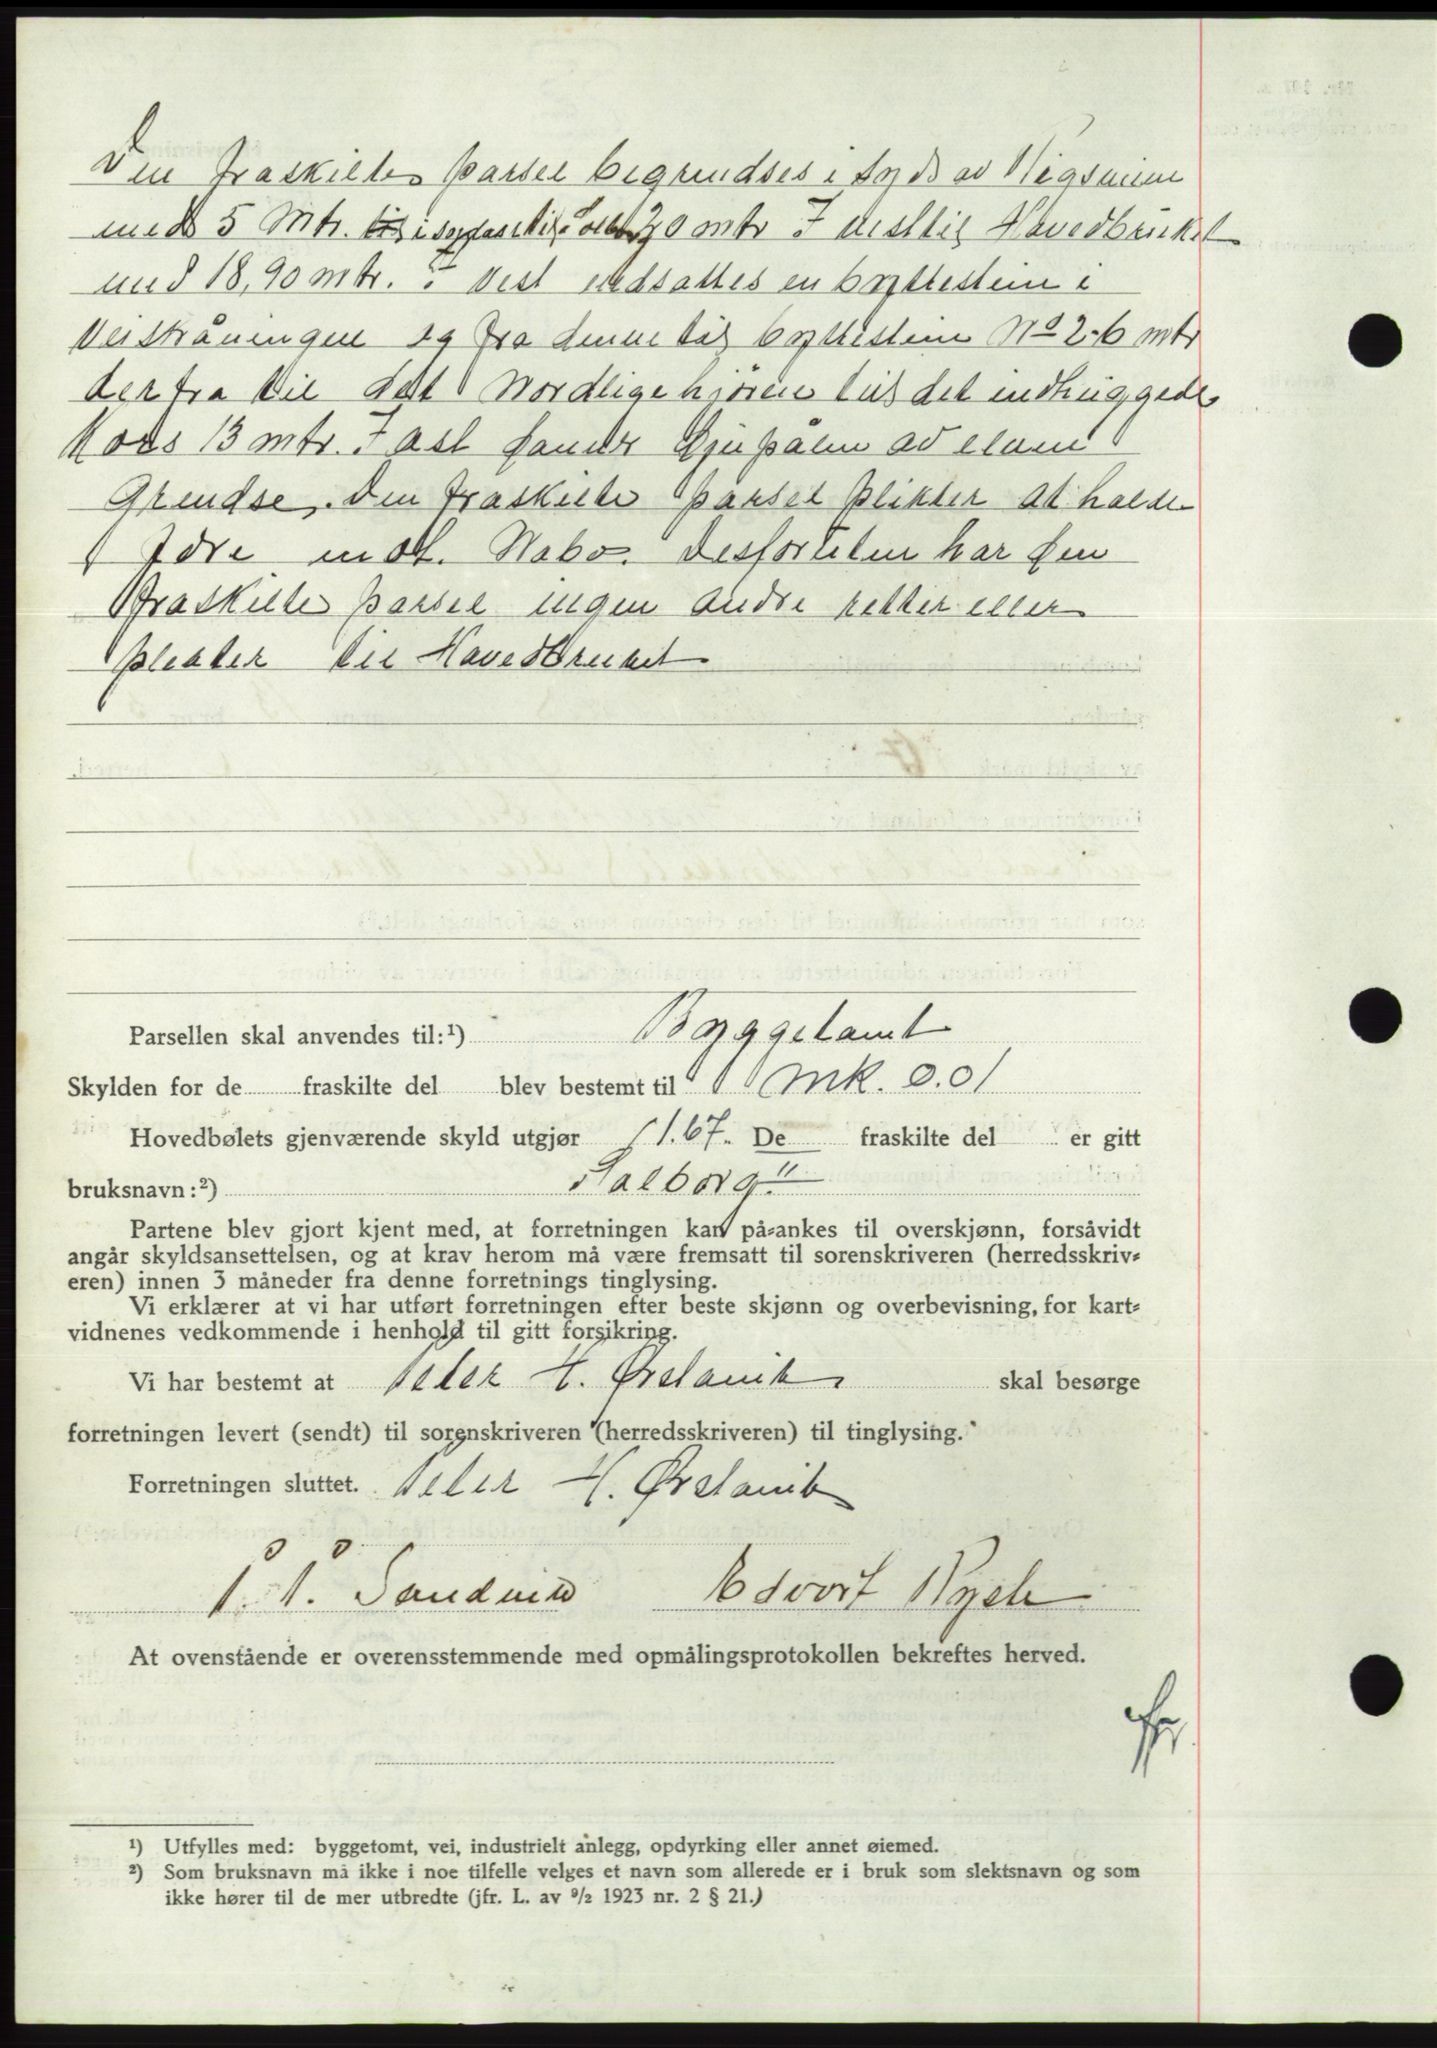 Den fraskilte parsel begrendses i syd av Rigsveien
med 5 Mtr. i sydost til 20 mtr I vest til Havedbruket
med 18,90 mtr. i vest nedsattes en byttestein i
Veiskråningen og fra denne til byttestein No 2-6 mtr
derfra til det Nordlige hjørne til det indhuggede
Kors 13 mtr. I ost danner av elven
Grendse. Den fraskilte parsel plikter at holde
mot Nabo. Desforuten har den
fraskilte parsel ingen andre retter eller
plikter til Havedbruket
Parsellen skal anvendes til:¹) Byggetomt
Skylden for de fraskilte del blev bestemt til mk. 0.01
Hovedbølets gjenværende skyld utgjør 1.67. De fraskilte del er gitt
bruksnavn:²) Solborg"
Partene blev gjort kjent med, at forretningen kan på-ankes til overskjønn, forsåvidt
angår skyldsansettelsen, og at krav herom må være fremsatt til sorenskriveren (herredsskriv-
eren) innen 3 måneder fra denne forretnings tinglysing.
Vi erklærer at vi har utført forretningen efter beste skjønn og overbevisning, for kart-
vidnenes vedkommende i henhold til gitt forsikring.
Vi har bestemt at Peter H. Ørstavik skal besørge
forretningen levert (sendt) til sorenskriveren (herredsskriveren) til tinglysing.
Forretningen sluttet. Peter H. Ørstavik
P. P. Sandvik Edvart Rysle
At ovenstående er overensstemmende med opmålingsprotokollen bekreftes herved.
¹) Utfylles med: byggetomt, vei, industrielt anlegg, opdyrking eller annet øiemed.
²) Som bruksnavn må ikke i noe tilfelle velges et navn som allerede er i bruk som slektsnavn og som
ikke hører til de mer utbredte (jfr. L. av ⁹/₂ 1923 nr. 2 § 21.)